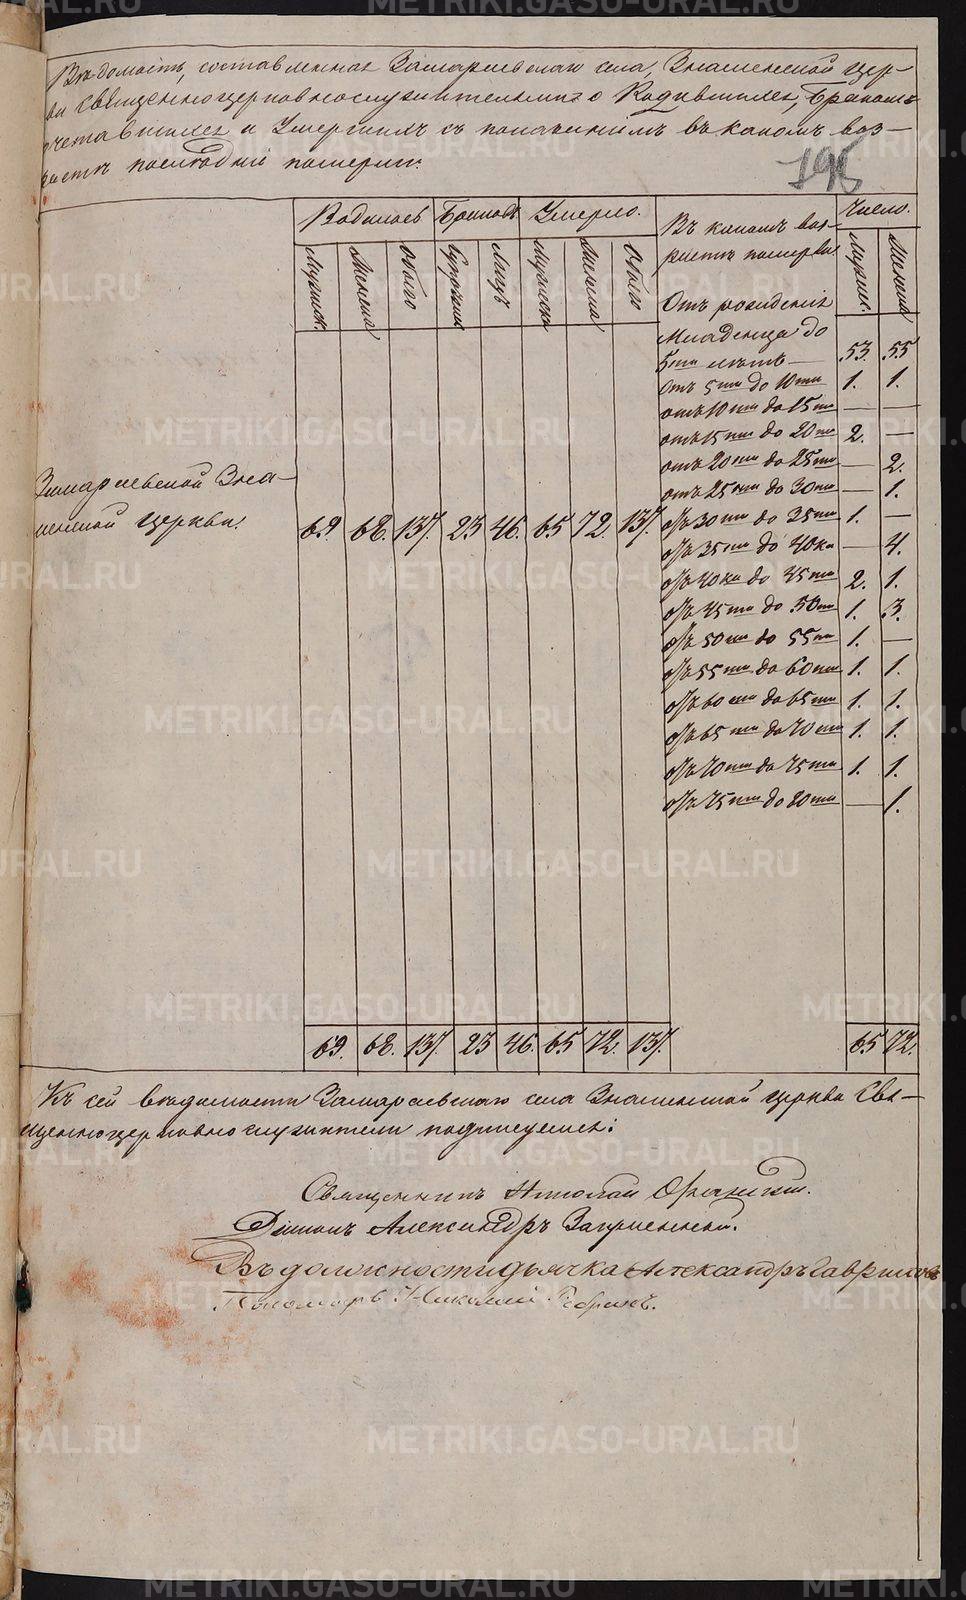 Ведомость, составленная Замараевскаго села, Знаменской Цер-
кви Священноцерковнослужительми о Родившихся, Бракомъ
сочетавшихся и Умершихъ съ показаніемъ въ какомъ воз-
растѣ последніи померли.
196
Родилось Браковъ Умерло. Въ какомъ воз- Число.
растѣ померли.
Мужск. Женска Обоего Супружн Лицъ Мужеска Женска Обоего Мужеск. Женска
Отъ рожденія
Младенца до
5ти лѣтъ — 53. 55
Отъ 5ти до 10ти 1. 1.
отъ 10ти до 15ти — —
отъ 15ти до 20ти 2. —
отъ 20ти до 25ти — 2.
отъ 25ти до 30ти — 1.
Замараевской Зна-
менской церкви. 69. 68. 137. 23. 46. 65 72. 137.
отъ 30ти до 35ти 1. —
отъ 35ти до 40ка — 4.
отъ 40ка до 45ти 2. 1.
отъ 45ти до 50ти 1. 3.
отъ 50ти до 55ти 1. —
отъ 55ти до 60ти 1. 1.
отъ 60ти до 65ти 1. 1.
отъ 65ти до 70ти 1. 1.
отъ 70ти до 75ти 1. 1.
отъ 75ти до 80ти — 1.
69. 68. 137. 23 46. 65 72. 137. 65 72.
Къ сей ведомости Замараевскаго села Знаменской церкви Свя-
щенноцерковнослужители подписуемся:
Священникъ Николай
Діаконъ Александръ
Въ должности дьячка Александръ Гавриловъ
Пономарь Николай
METRIKI.GASO-URAL.RU